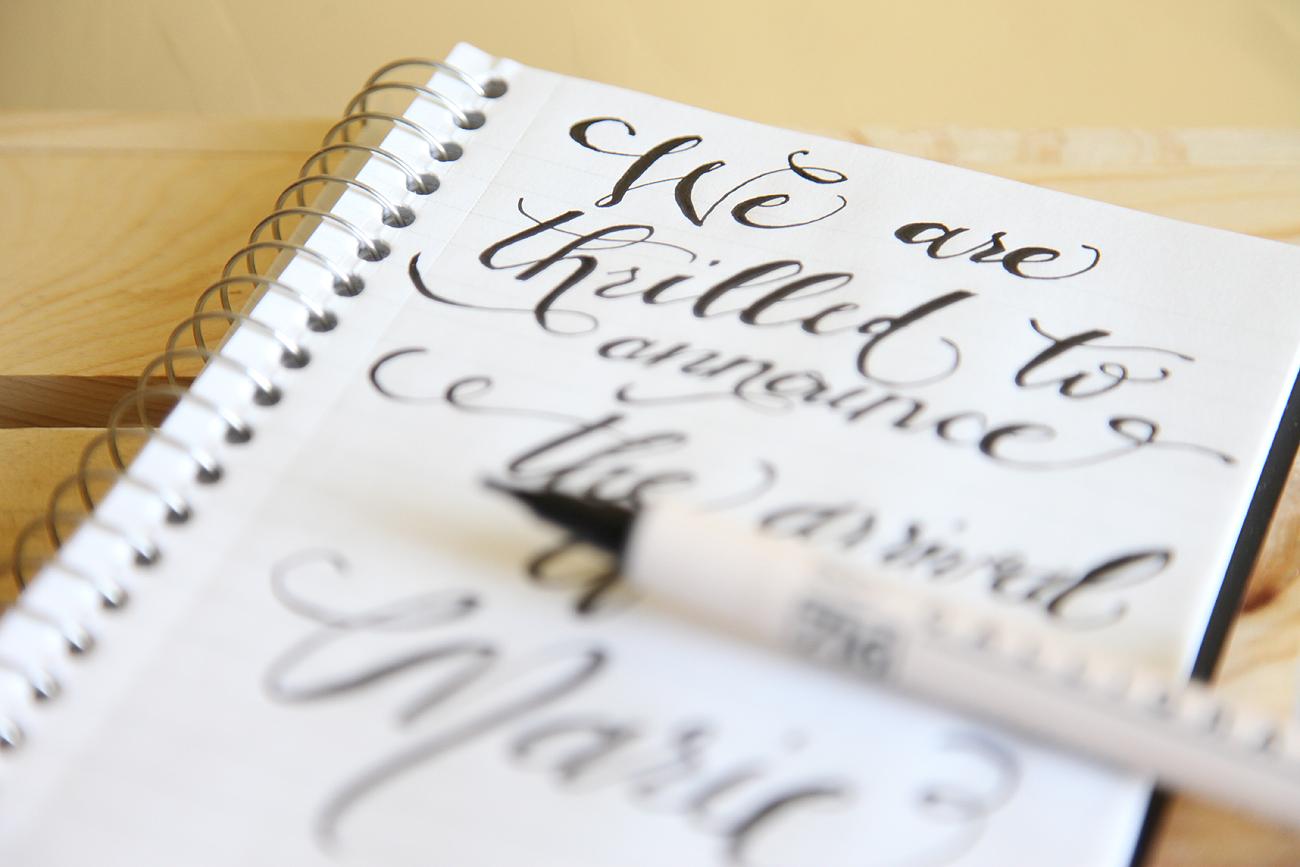 We are
thrilled to
announce
the arrival
Marie